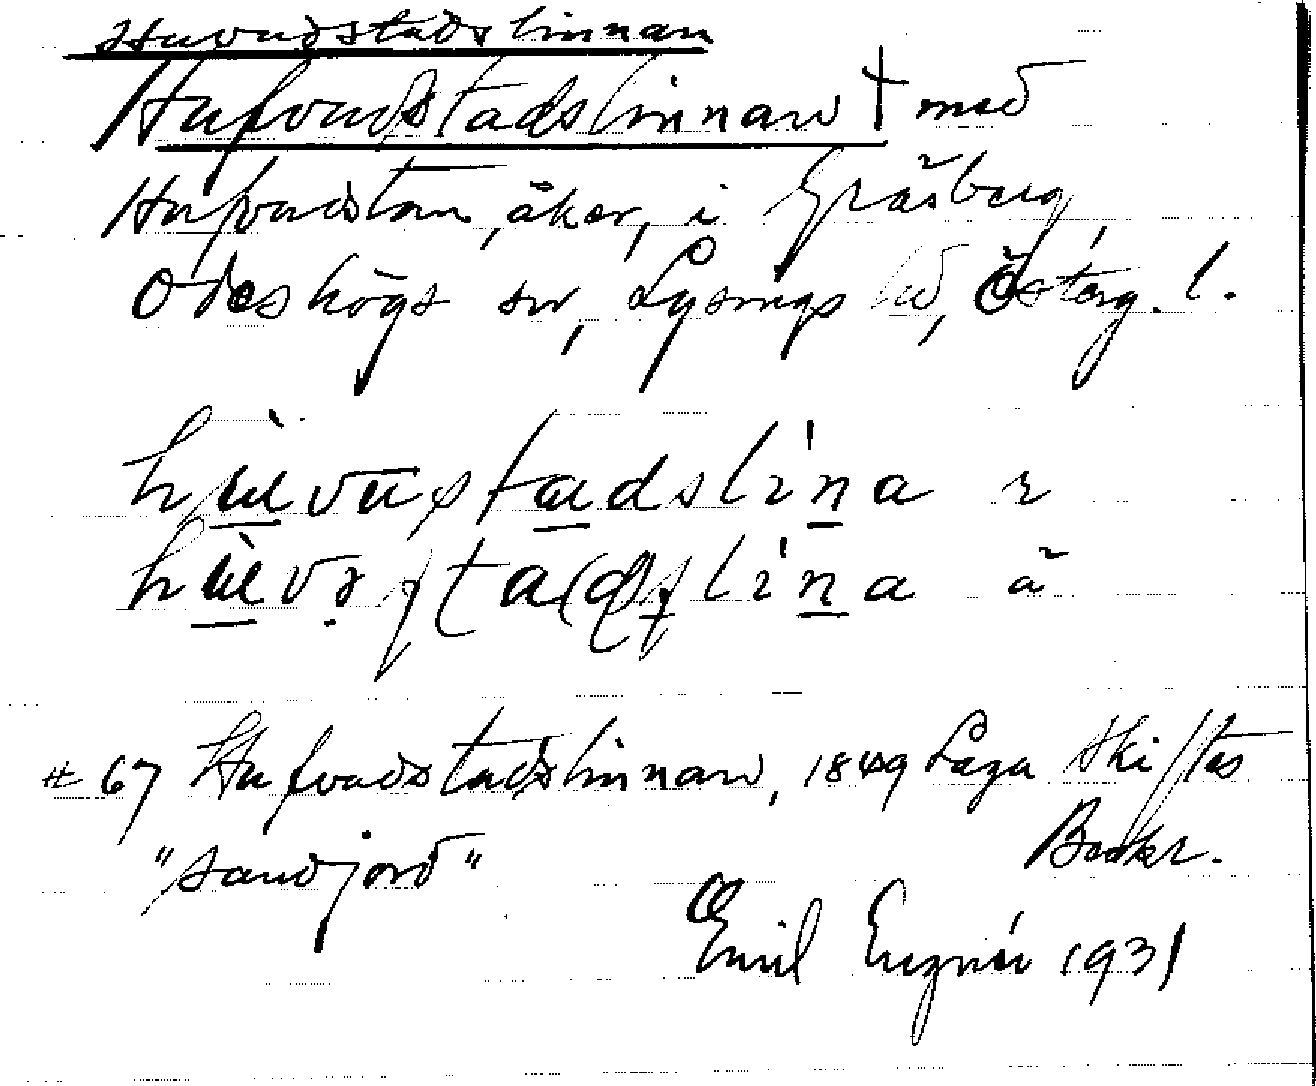 Huvudstadslinnan
Hufvudstadslinnan † med
Hufvudstan, åker, i Gräsberg,
Ödeshögs sn, Lysings hd, Österg. l.
hùvustadslina r
hùvəsta(d)slina ä
# 67 Hufvudstadslinnan, 1849 Laga Skiftes
Beskr.
"sandjord"
Emil 1931